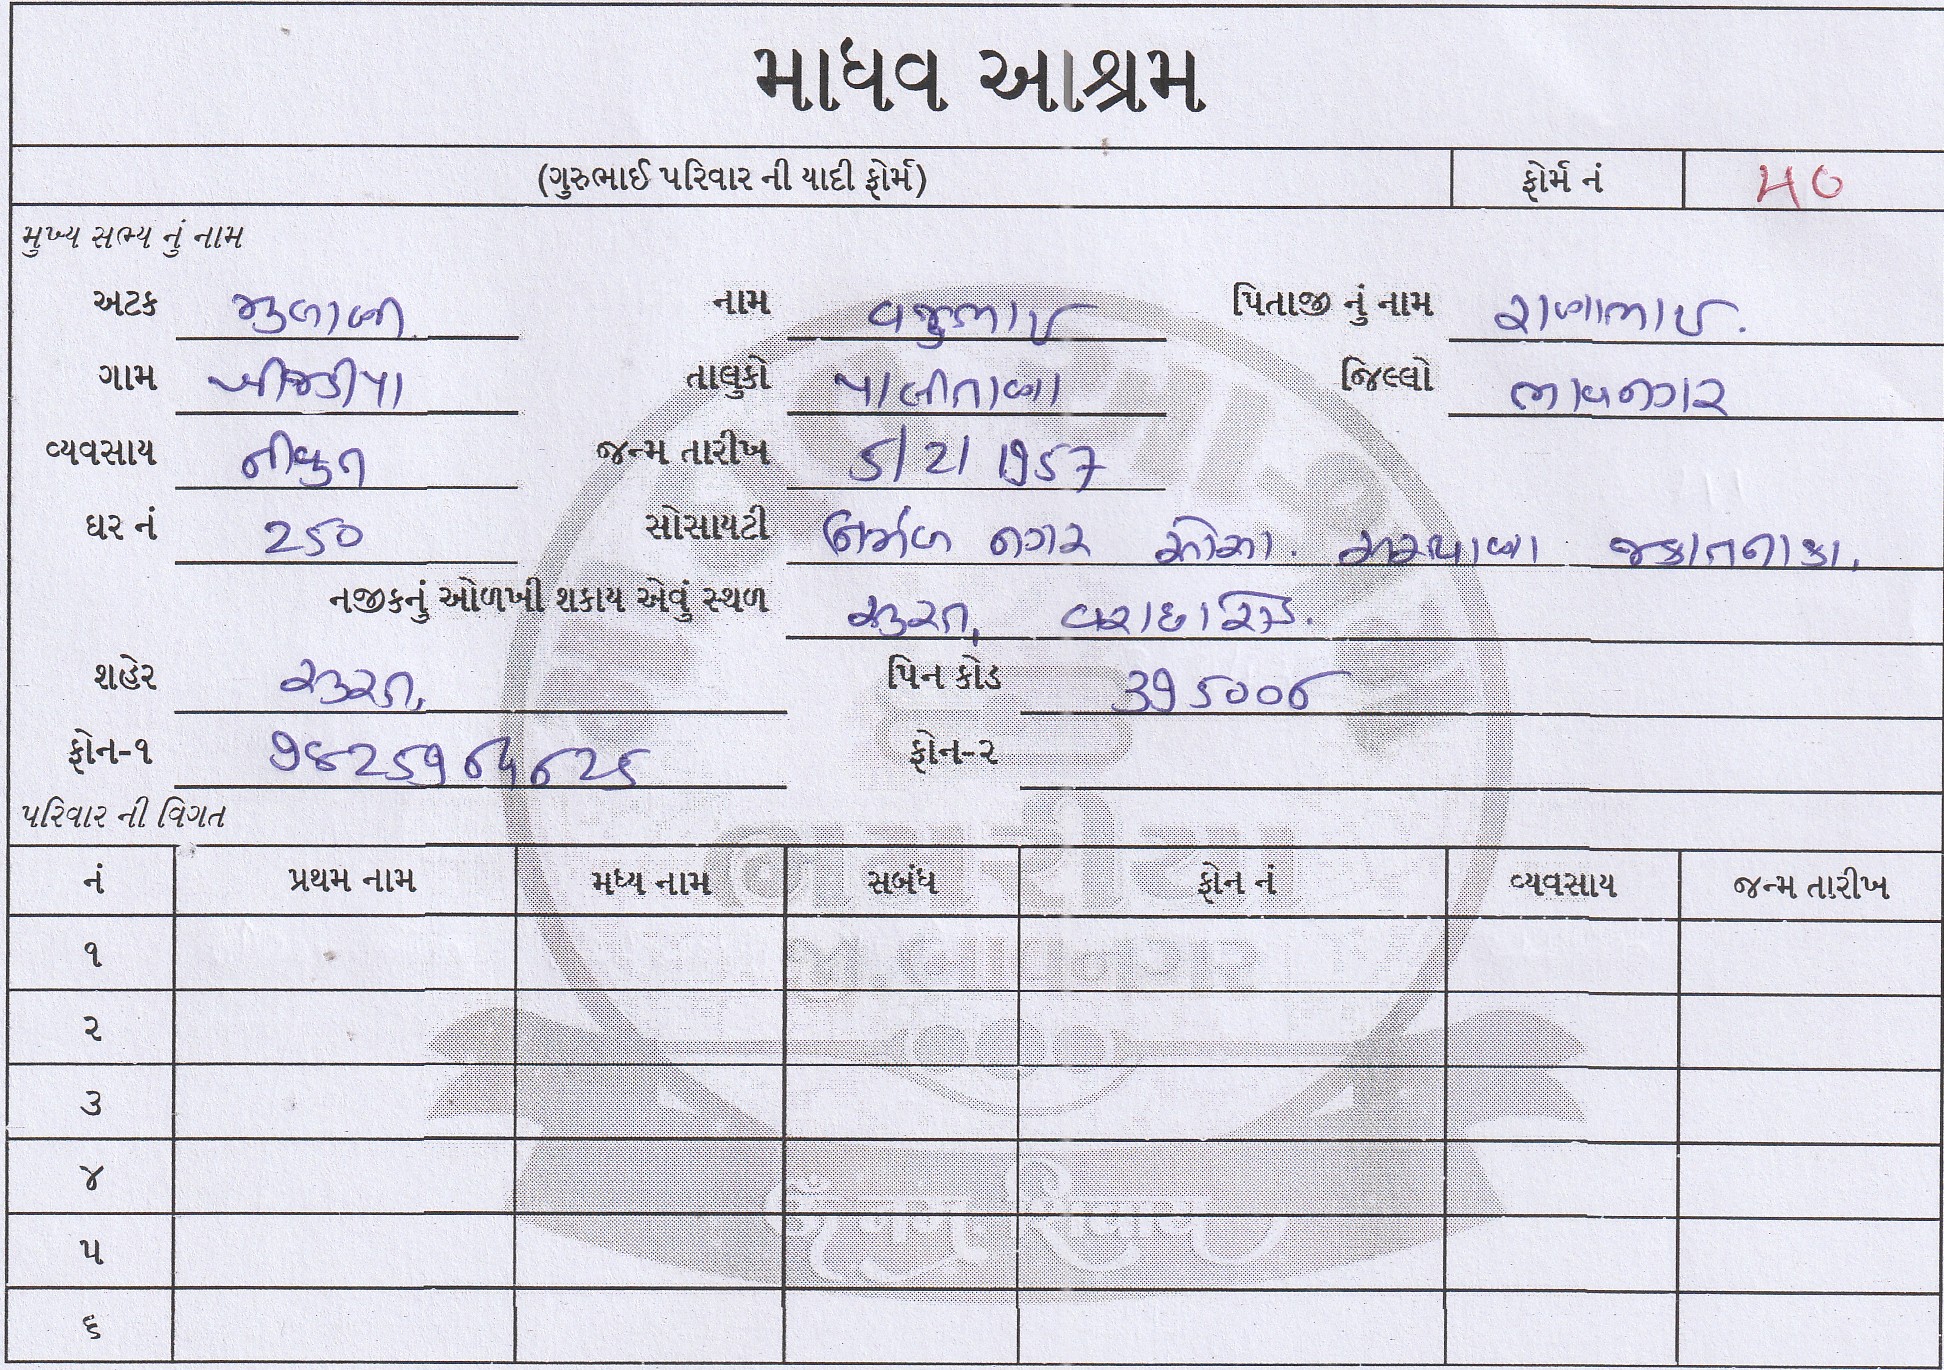 માધવ આશ્રમ
(ગુરુભાઈ પરિવાર ની યાદી ફોર્મ) ફોર્મ નં ૫૦
મુખ્ય સભ્ય નું નામ
અટક નામ વજુભાઈ પિતાજી નું નામ રાણાભાઈ.
ગામ ખીજડીયા તાલુકો પાલીતાણા જિલ્લો ભાવનગર
વ્યવસાય નીવૃત જન્મ તારીખ 5/2/1957
ઘર નં 250 સોસાયટી નિર્મળ નગર સોસા. સરથાણા જકાતનાકા,
નજીકનું ઓળખી શકાય એવું સ્થળ સુરત, વરાછા રોડ.
શહેર સુરત, પિન કોડ 395006
ફોન-૧ ફોન-૨
પરિવાર ની વિગત
નં પ્રથમ નામ મધ્ય નામ સબંધ ફોન નં વ્યવસાય જન્મ તારીખ
૧
૨
૩
૪
૫
૬